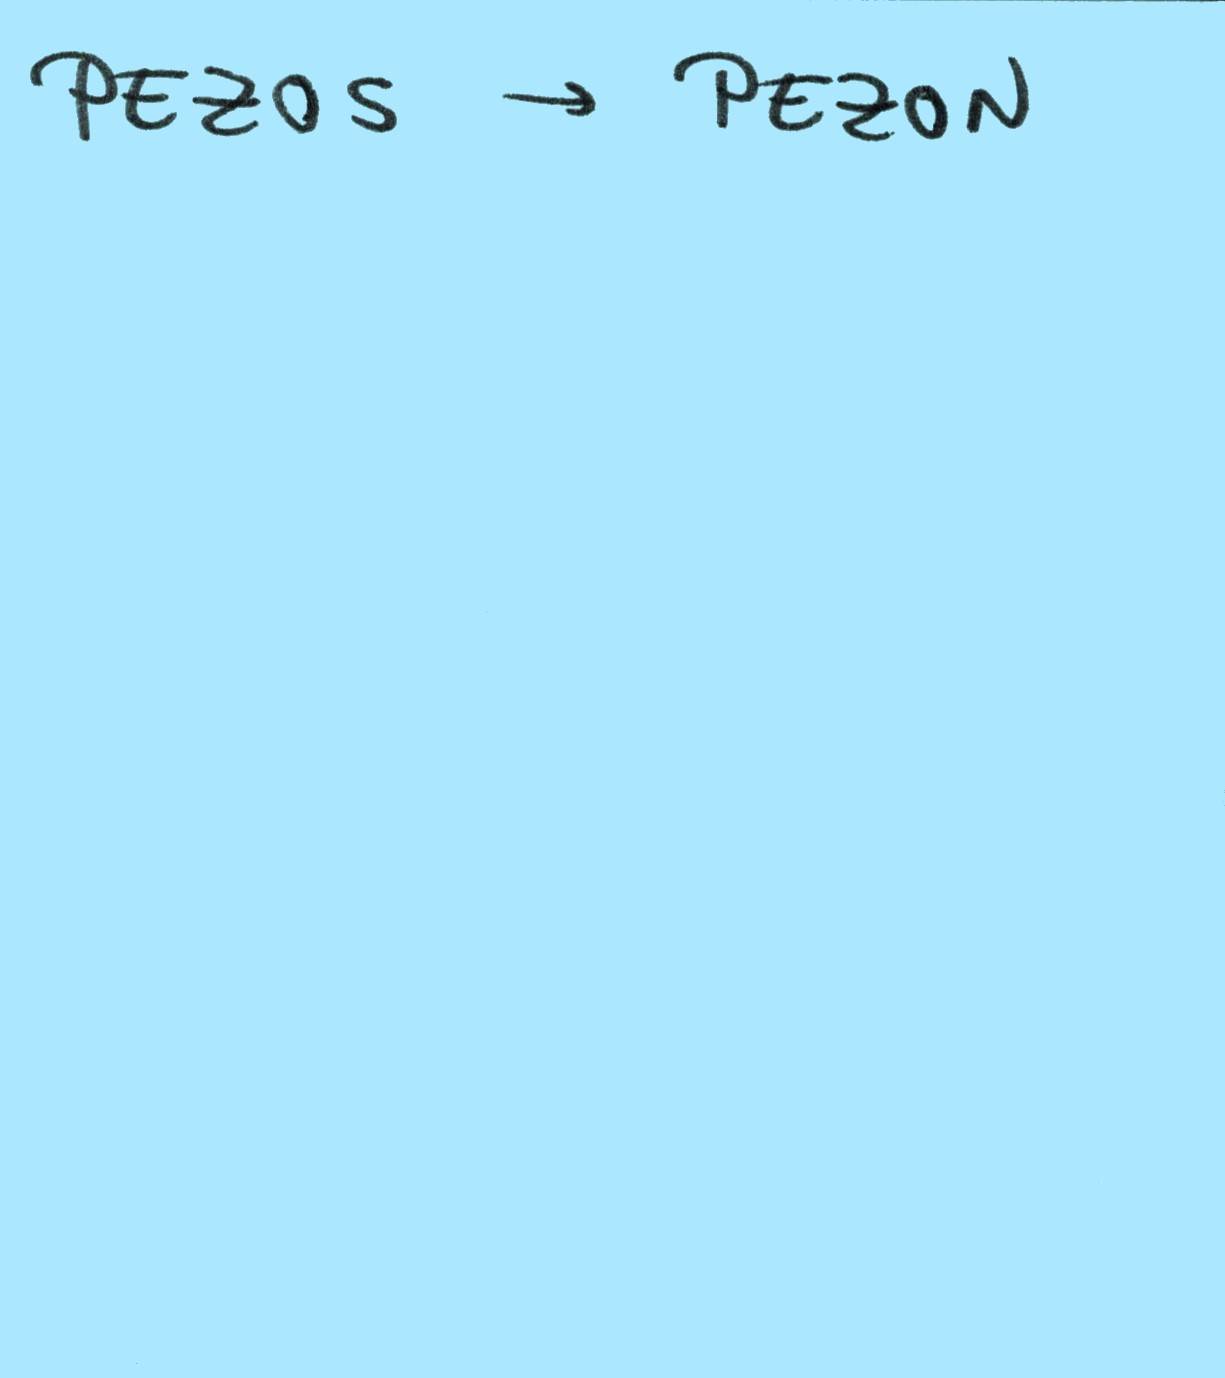 PEZOS → PEZON